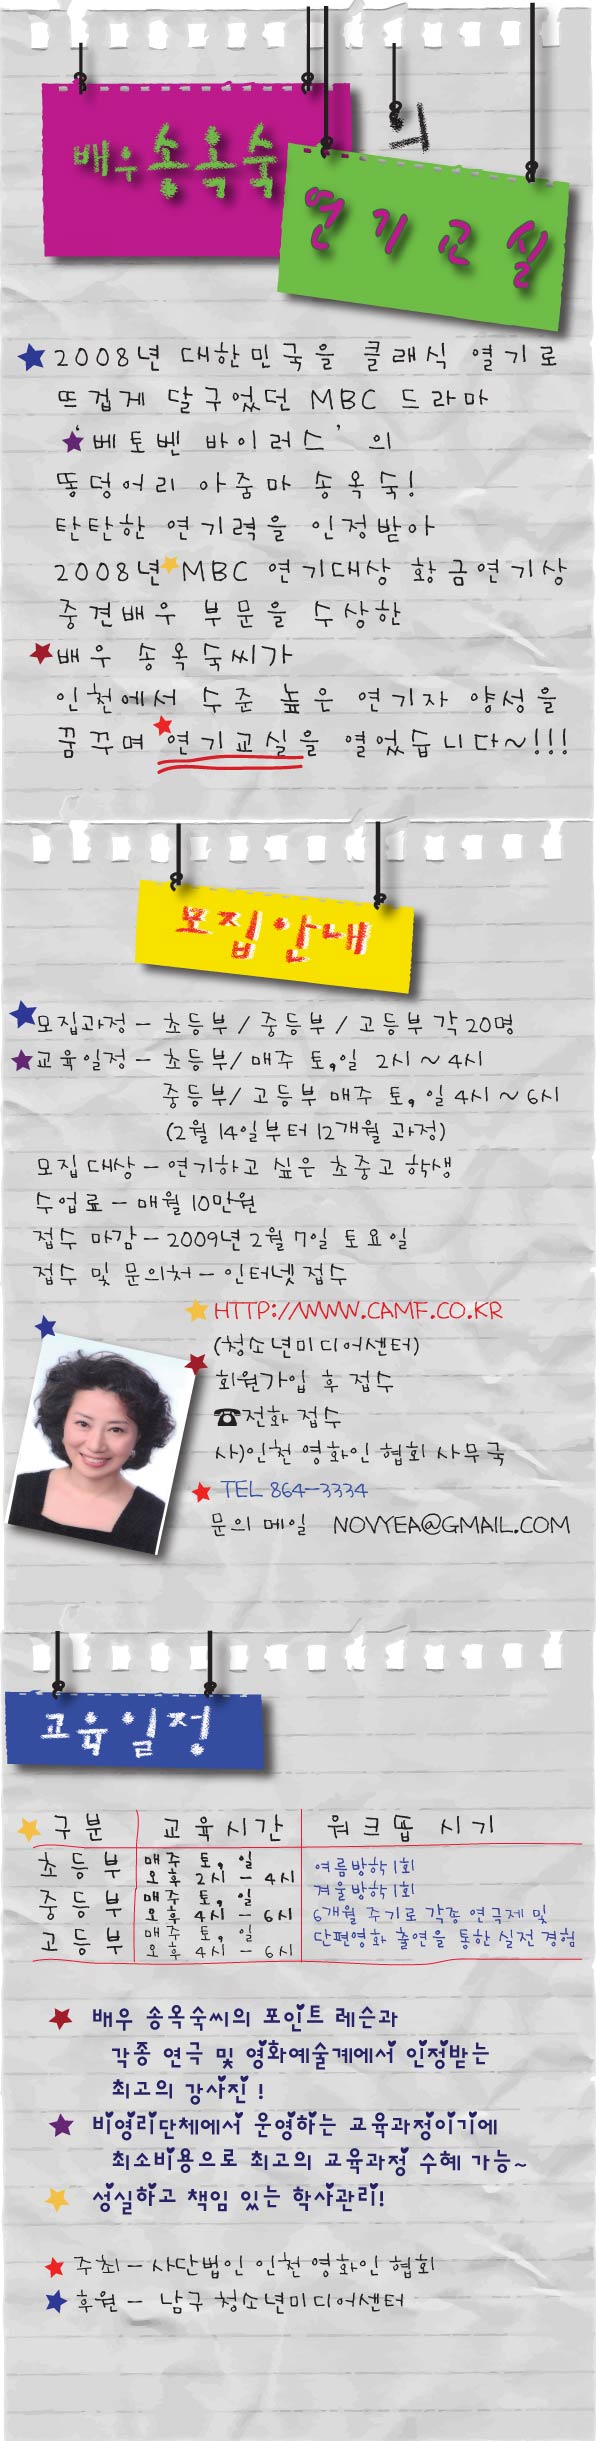 배우 송옥숙 의
연기교실
2008년 대한민국을 클래식 열기로
뜨겁게 달구었던 MBC 드라마
'베토벤 바이러스' 의
똥덩어리 아줌마 송옥숙!
탄탄한 연기력을 인정받아
2008년 MBC 연기대상 황금연기상
중견배우 부문을 수상한
배우 송옥숙씨가
인천에서 수준 높은 연기자 양성을
꿈꾸며 연기교실을 열었습니다~!!!
모집안내
모집과정 - 초등부 / 중등부 / 고등부 각 20명
교육일정 - 초등부/ 매주 토, 일 2시 ~ 4시
중등부/ 고등부 매주 토, 일 4시 ~ 6시
(2월 14일부터 12개월 과정)
모집대상 - 연기하고 싶은 초중고 학생
수업료 - 매월 10만원
접수 마감 - 2009년 2월 7일 토요일
접수 및 문의처 - 인터넷 접수
HTTP://WWW.CAMF.CO.KR
(청소년미디어센터)
회원가입 후 접수
☎전화 접수
사)인천 영화인 협회 사무국
TEL 864-3334
문의 메일 NOVYEA@GMAIL.COM
교육일정
구분 교육시간 워크숍 시기
초등부 매주 토, 일 오후 2시 - 4시
중등부 매주 토, 일 오후 4시 - 6시
고등부 매주 토, 일 오후 4시 - 6시
여름방학 1회
겨울방학 1회
6개월 주기로 각종 연극제 및
단편영화 출연을 통한 실전 경험
배우 송옥숙씨의 포인트 레슨과
각종 연극 및 영화예술계에서 인정받는
최고의 강사진 !
비영리단체에서 운영하는 교육과정이기에
최소비용으로 최고의 교육과정 수혜 가능~
성실하고 책임 있는 학사관리!
주최 - 사단법인 인천 영화인 협회
후원 - 남구 청소년미디어센터